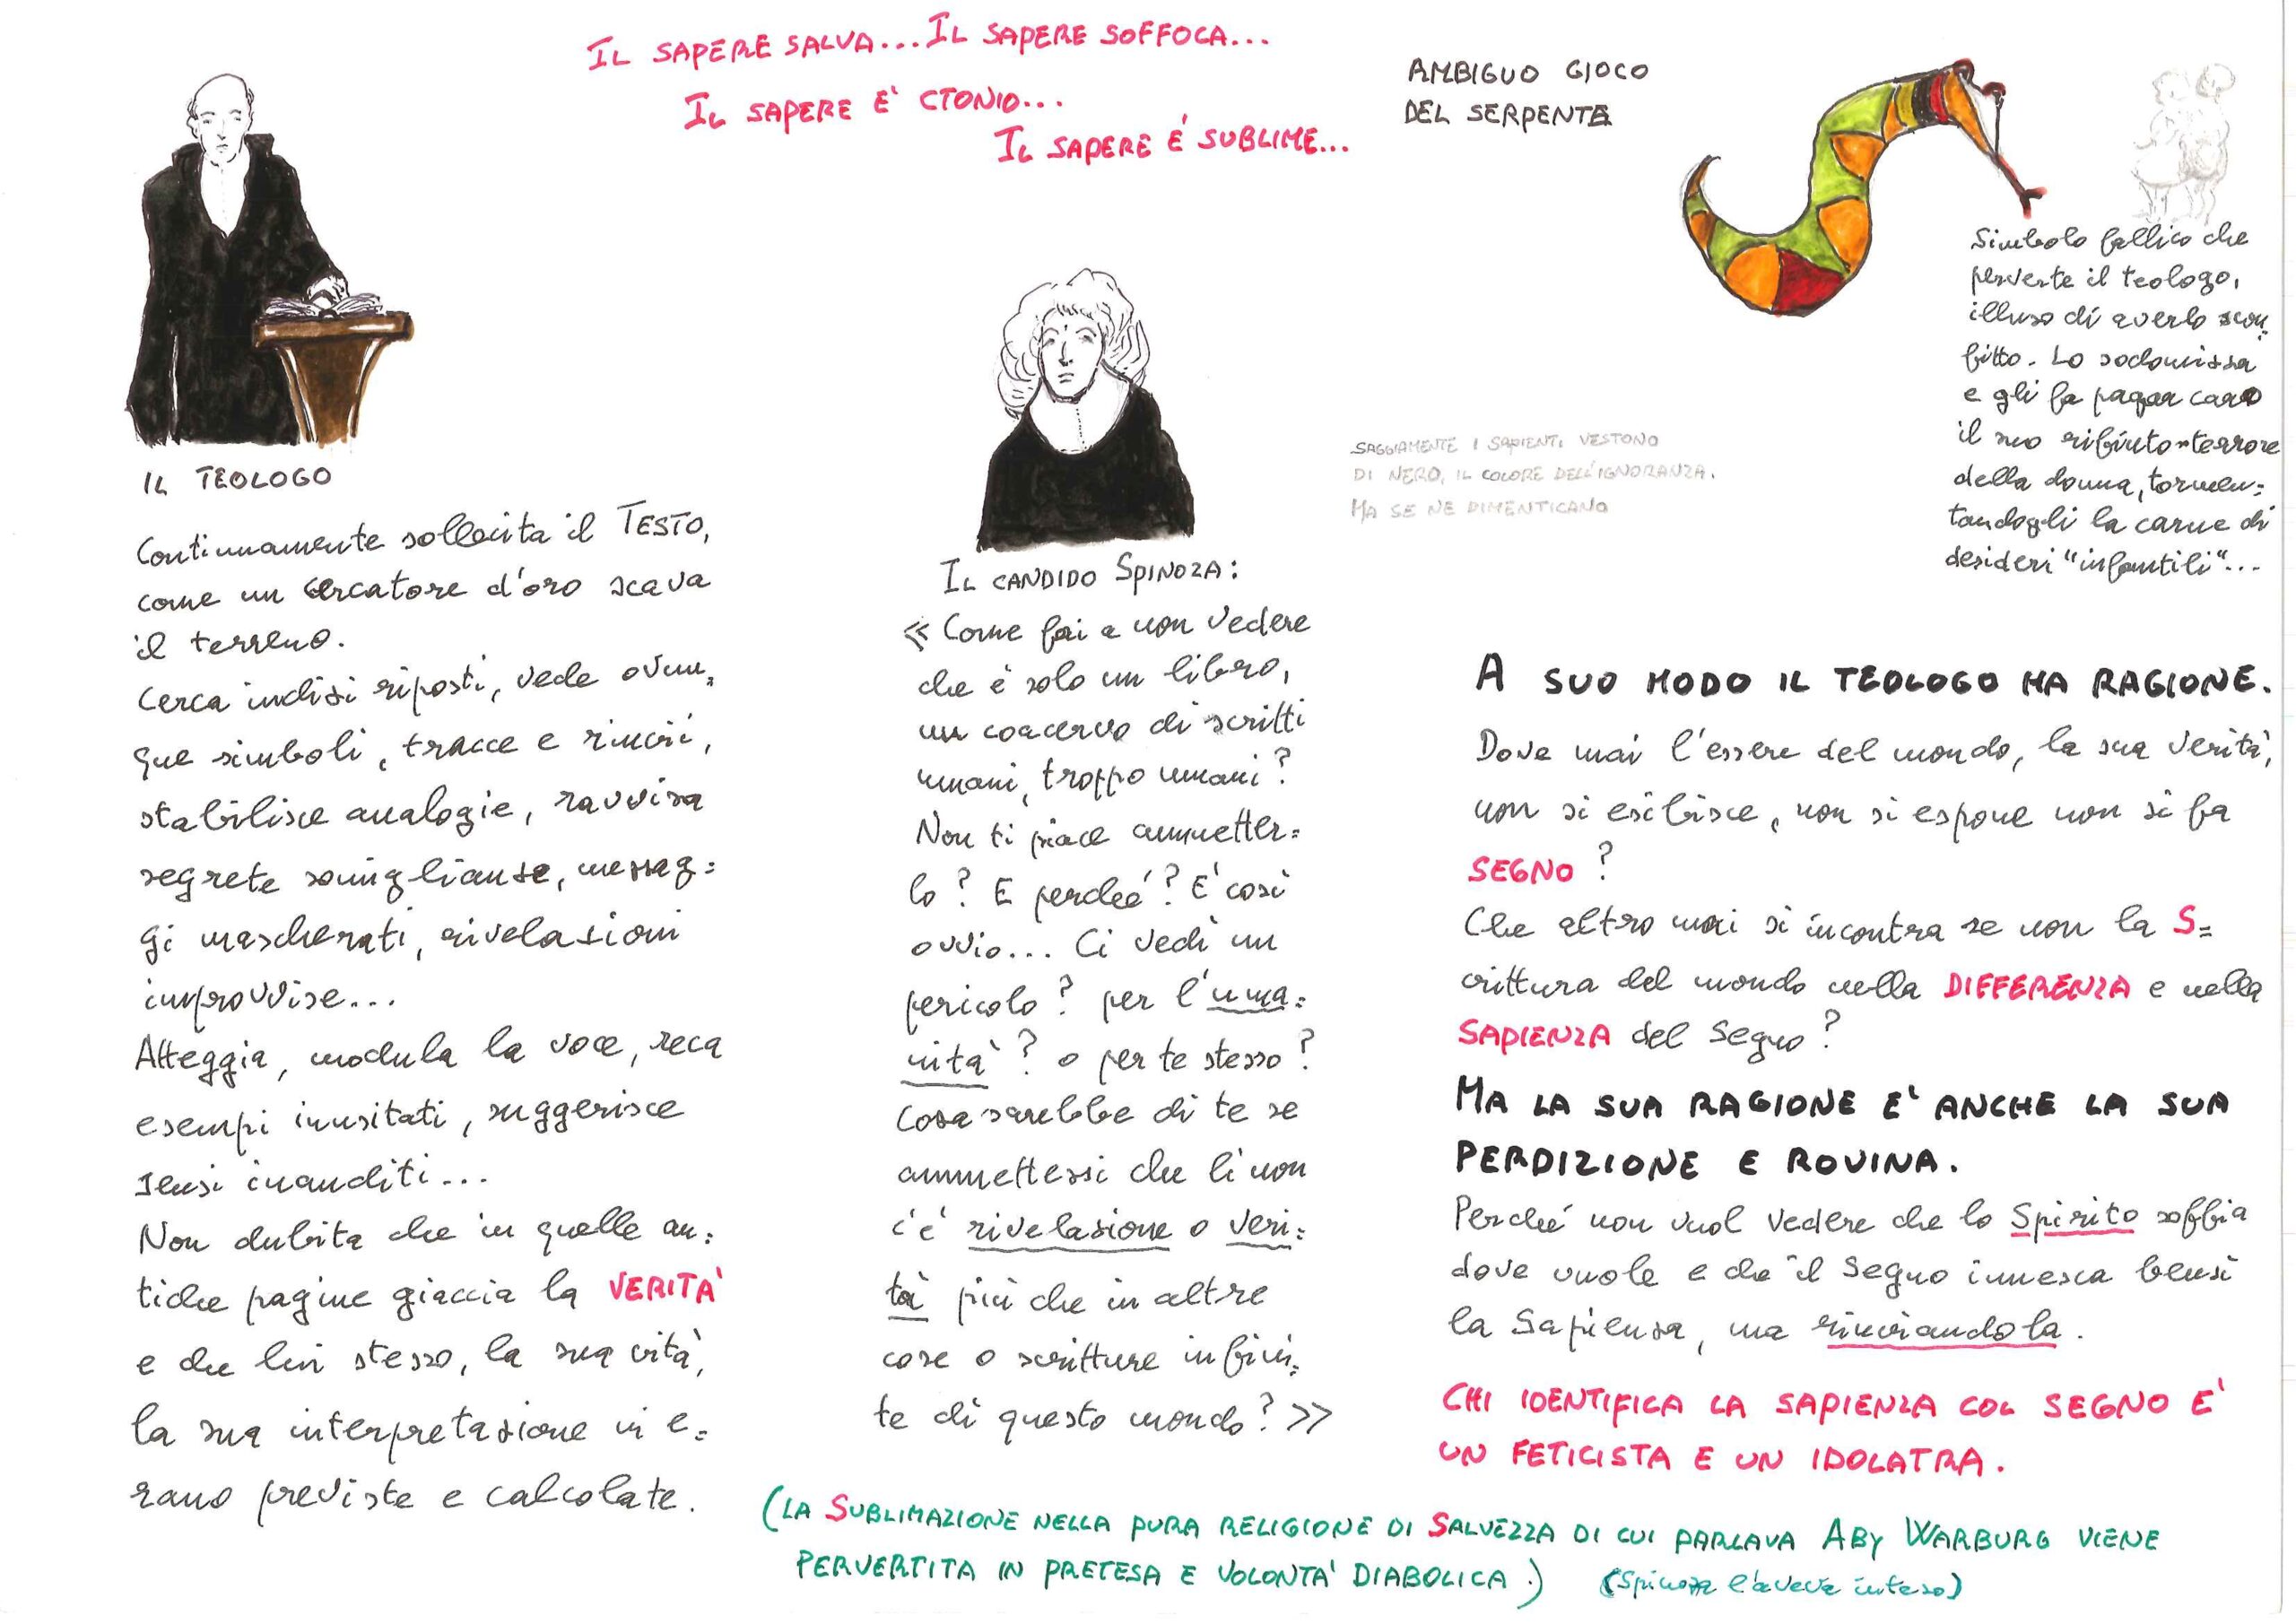 IL SAPERE SALVA...IL SAPERE SOFFOCA...
IL SAPERE E' CTONIO...
IL SAPERE É SUBLIME...
AMBIGUO GIOCO
DEL SERPENTE
Simbolo fallico che
perverte il teologo,
illuso di averlo scon=
fitto. Lo sodomizza
e gli fa pagar caro
il suo rifiuto-terrore
della donna, tormen=
tandogli la carne di
desideri "infantili"...
IL TEOLOGO
Continuamente sollecita il TESTO,
come un cercatore d'oro scava
il terreno.
Cerca indizi riposti, vede ovun=
que simboli, tracce e rinvii,
stabilisce analogie, ravvisa
segrete somiglianze, messag=
gi mascherati, rivelazioni
improvvise...
Atteggia, modula la voce, reca
esempi inusitati, suggerisce
sensi inauditi...
Non dubita che in quelle an=
tiche pagine giaccia la VERITA'
e che lui stesso, la sua vita,
la sua interpretazione vi e=
rano previste e calcolate.
SAGGIAMENTE I SAPIENTI VESTONO
DI NERO, IL COLORE DELL'IGNORANZA.
MA SE NE DIMENTICANO
IL CANDIDO SPINOZA:
« Come fai a non vedere
che è solo un libro,
un coacervo di scritti
umani, troppo umani?
Non ti piace ammetter=
lo? E perché? E' così
ovvio... Ci vedi un
pericolo? per l'uma=
nità? o per te stesso?
Cosa sarebbe di te se
ammettessi che lì non
c'è rivelazione o veri=
tà più che in altre
cose o scritture infini=
te di questo mondo? »
A SUO MODO IL TEOLOGO HA RAGIONE.
Dove mai l'essere del mondo, la sua verità,
non si esibisce, non si espone non si fa
SEGNO?
Che altro mai si incontra se non la S=
crittura del mondo nella DIFFERENZA e nella
SAPIENZA del Segno?
MA LA SUA RAGIONE E' ANCHE LA SUA
PERDIZIONE E ROVINA.
Perché non vuol vedere che lo Spirito soffia
dove vuole e che il Segno innesca bensì
la Sapienza, ma rinviandola.
CHI IDENTIFICA LA SAPIENZA COL SEGNO E'
UN FETICISTA E UN IDOLATRA.
(LA SUBLIMAZIONE NELLA PURA RELIGIONE DI SALVEZZA DI CUI PARLAVA ABY WARBURG VIENE
PERVERTITA IN PRETESA E VOLONTA' DIABOLICA.) (Spinoza l'aveva inteso)